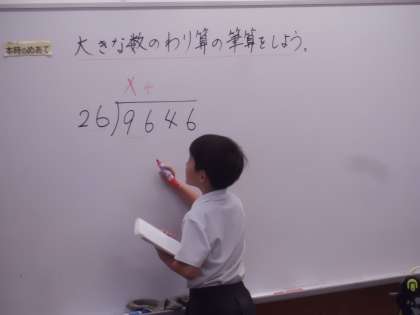 本時のめあて
大きな数のわり算の筆算をしよう。
×
26)9646